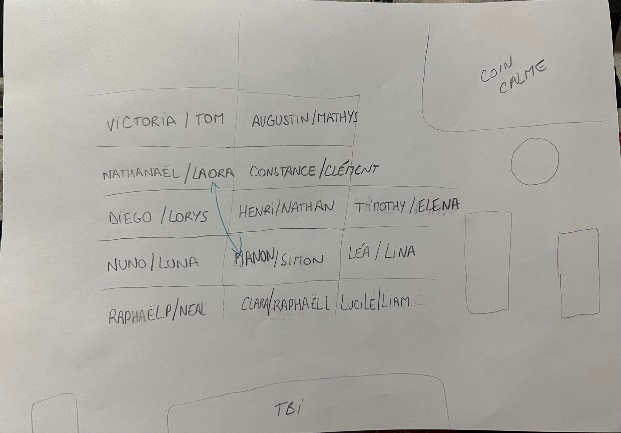 COIN
CALME
VICTORIA / TOM AUGUSTIN/MATHYS
NATHANAËL/LAORA CONSTANCE/CLÉMENT
DIEGO / LORYS HENRI/NATHAN TIMOTHY/ELENA
NUNO/LUNA MANON/SIMON LÉA / LINA
RAPHAËLP/NEAL CLARA/RAPHAËLL LUCILE/LIAM
TBI